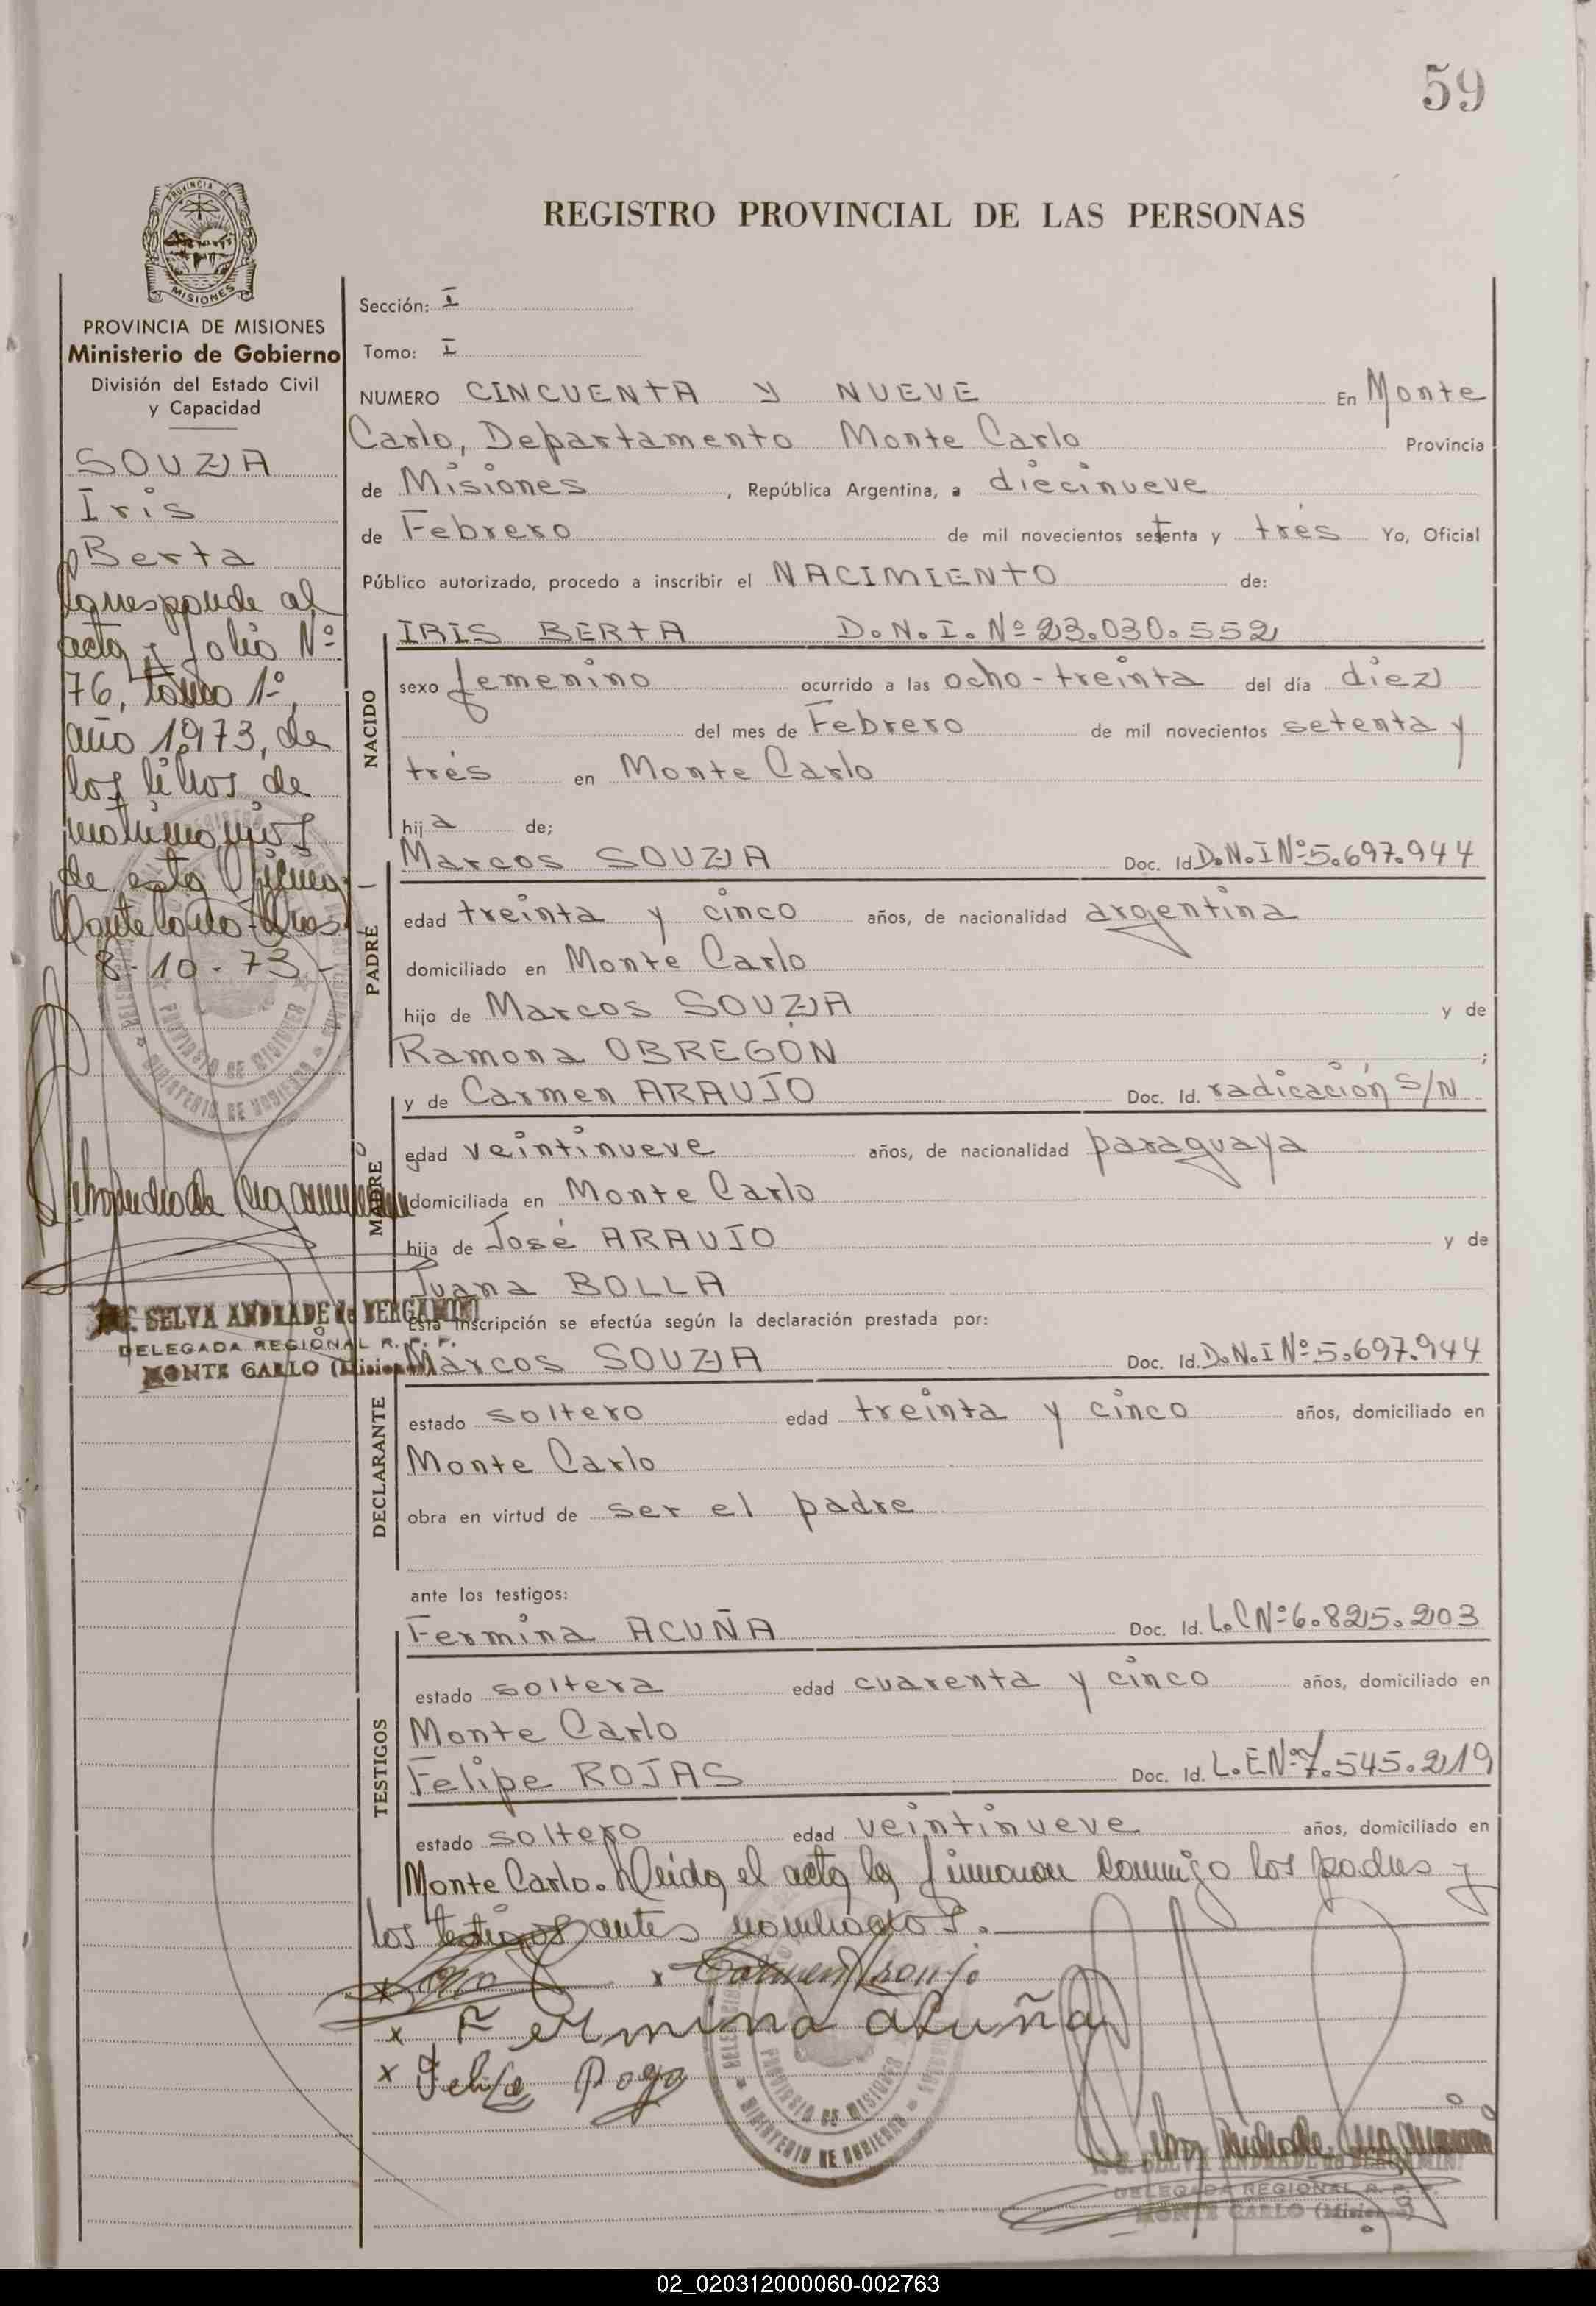 59
REGISTRO PROVINCIAL DE LAS PERSONAS
PROVINCIA DE MISIONES
Ministerio de Gobierno
División del Estado Civil
y Capacidad
SOUZA
Iris
Berta
Corresponde al
acta y folio Nº
76, tomo 1º,
año 1973, de
los libros de
matrimonios
de esta Oficina
Monte Carlo
8-10-73-
C. SELVA ANDRADE de BERGAMINI
DELEGADA REGIONAL R. P. P.
MONTE CARLO (Misiones)
Sección: I
Tomo: I
NUMERO CINCUENTA Y NUEVE En Monte
Carlo, Departamento Monte Carlo Provincia
de Misiones, República Argentina, a diecinueve
de Febrero de mil novecientos setenta y trés Yo, Oficial
Público autorizado, procedo a inscribir el NACIMIENTO de:
NACIDO
IRIS BERTA D.N.I. Nº 23.030.552
sexo femenino ocurrido a las ocho-treinta del día diez
del mes de Febrero de mil novecientos setenta y
trés en Monte Carlo
hija de;
PADRE
Marcos SOUZA Doc. Id. D.N.I Nº 5.697.944
edad treinta y cinco años, de nacionalidad argentina
domiciliado en Monte Carlo
hijo de Marcos SOUZA y de
Ramona OBREGON;
MADRE
y de Carmen ARAUJO Doc. Id. radicación S/N
edad veintinueve años, de nacionalidad paraguaya
domiciliada en Monte Carlo
hija de José ARAUJO y de
Juana BOLLA
Esta inscripción se efectúa según la declaración prestada por:
DECLARANTE
Marcos SOUZA Doc. Id. D.N.I Nº 5.697.944
estado soltero edad treinta y cinco años, domiciliado en
Monte Carlo
obra en virtud de ser el padre
ante los testigos:
TESTIGOS
Fermina ACUÑA Doc. Id. L.C Nº 6.825.203
estado soltera edad cuarenta y cinco años, domiciliado en
Monte Carlo
Felipe ROJAS Doc. Id. L.E Nº 7.545.219
estado soltero edad veintinueve años, domiciliado en
Monte Carlo. Leída el acta la firmaron conmigo los padres y
los testigos antes nombrados.
x x Carmen Araujo
x Fermina Acuña
x Felipe
PROVINCIA DE MISIONES
MINISTERIO DE GOBIERNO
C. SELVA ANDRADE de BERGAMINI
DELEGADA REGIONAL R. P. P.
MONTE CARLO (Misiones)
02_020312000060-002763